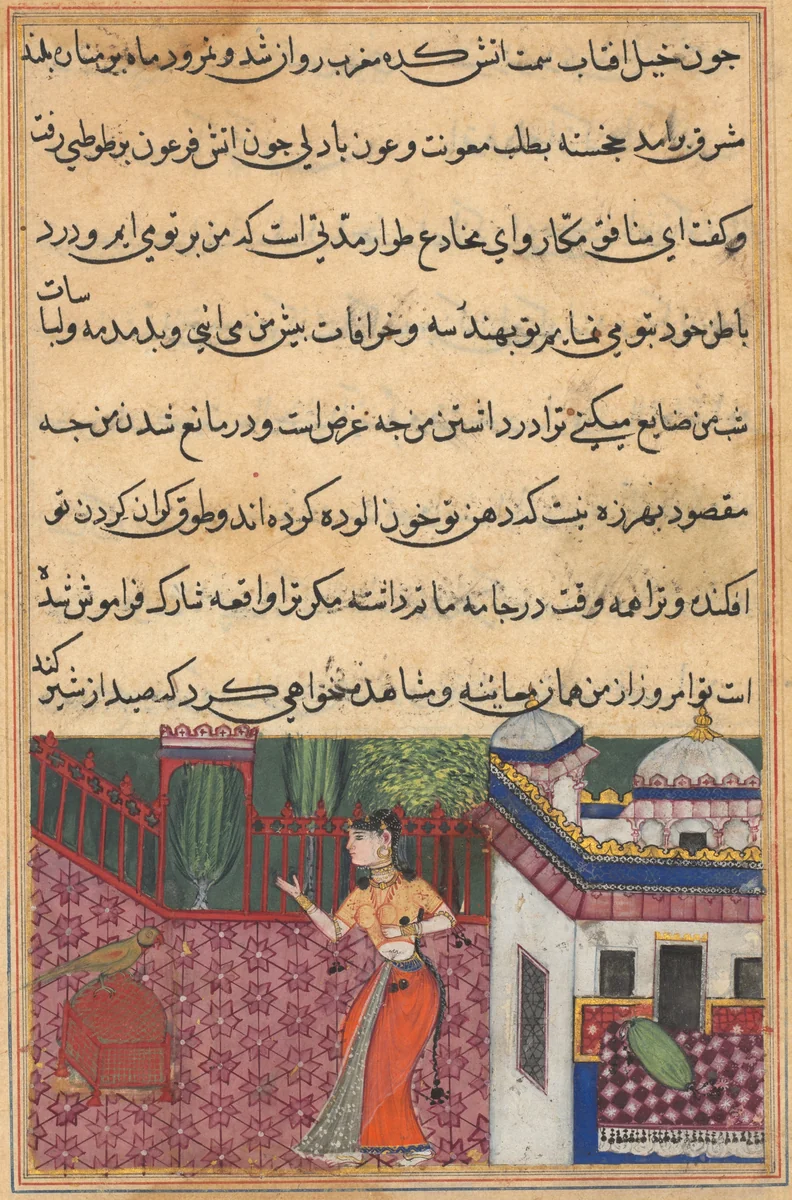 جون خیل افتاب سمت اتش کده مغرب روان شد و نمرود ماه بر مناره بلند
مشرق برامد خجسته بطلب معونت و عون بادلی جون اتش فرعون بر طوطی رفت
و کفت ای منافق مکار و ای مخادع طرار مدتی است که من بر تو می ایم و درد
باطن خود بتو می نمایم تو بهندسه و خرافات بیش من می ائی و بدمدمه ولباسات
شب من ضایع میکنی ترا در داشتن من جه غرض است و در مانع شدن من جه
مقصود بهرزه نیست که دهن تو خون الوده کرده اند و طوق کران کردن تو
افکنده و ترا همه وقت در جامه ماتم داشته مکر ترا واقعه شارک فراموش شده
است تو امروز از من همان معاینه و مشاهده خواهی کرد که صید از شیر کند